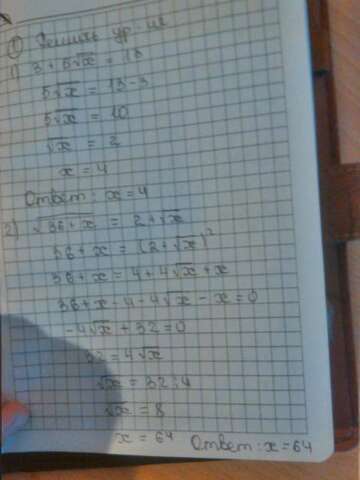 ① Решить ур-ие
1) 3 + 5√x = 13
5√x = 13-3
5√x = 10
√x = 2
x = 4
Ответ: x=4
2) √36+x = 2+√x
36+x = (2+√x)²
36+x = 4+4√x+x
36+x-4-4√x-x=0
-4√x+32=0
32=4√x
√x = 32:4
√x = 8
x = 64 Ответ: x=64